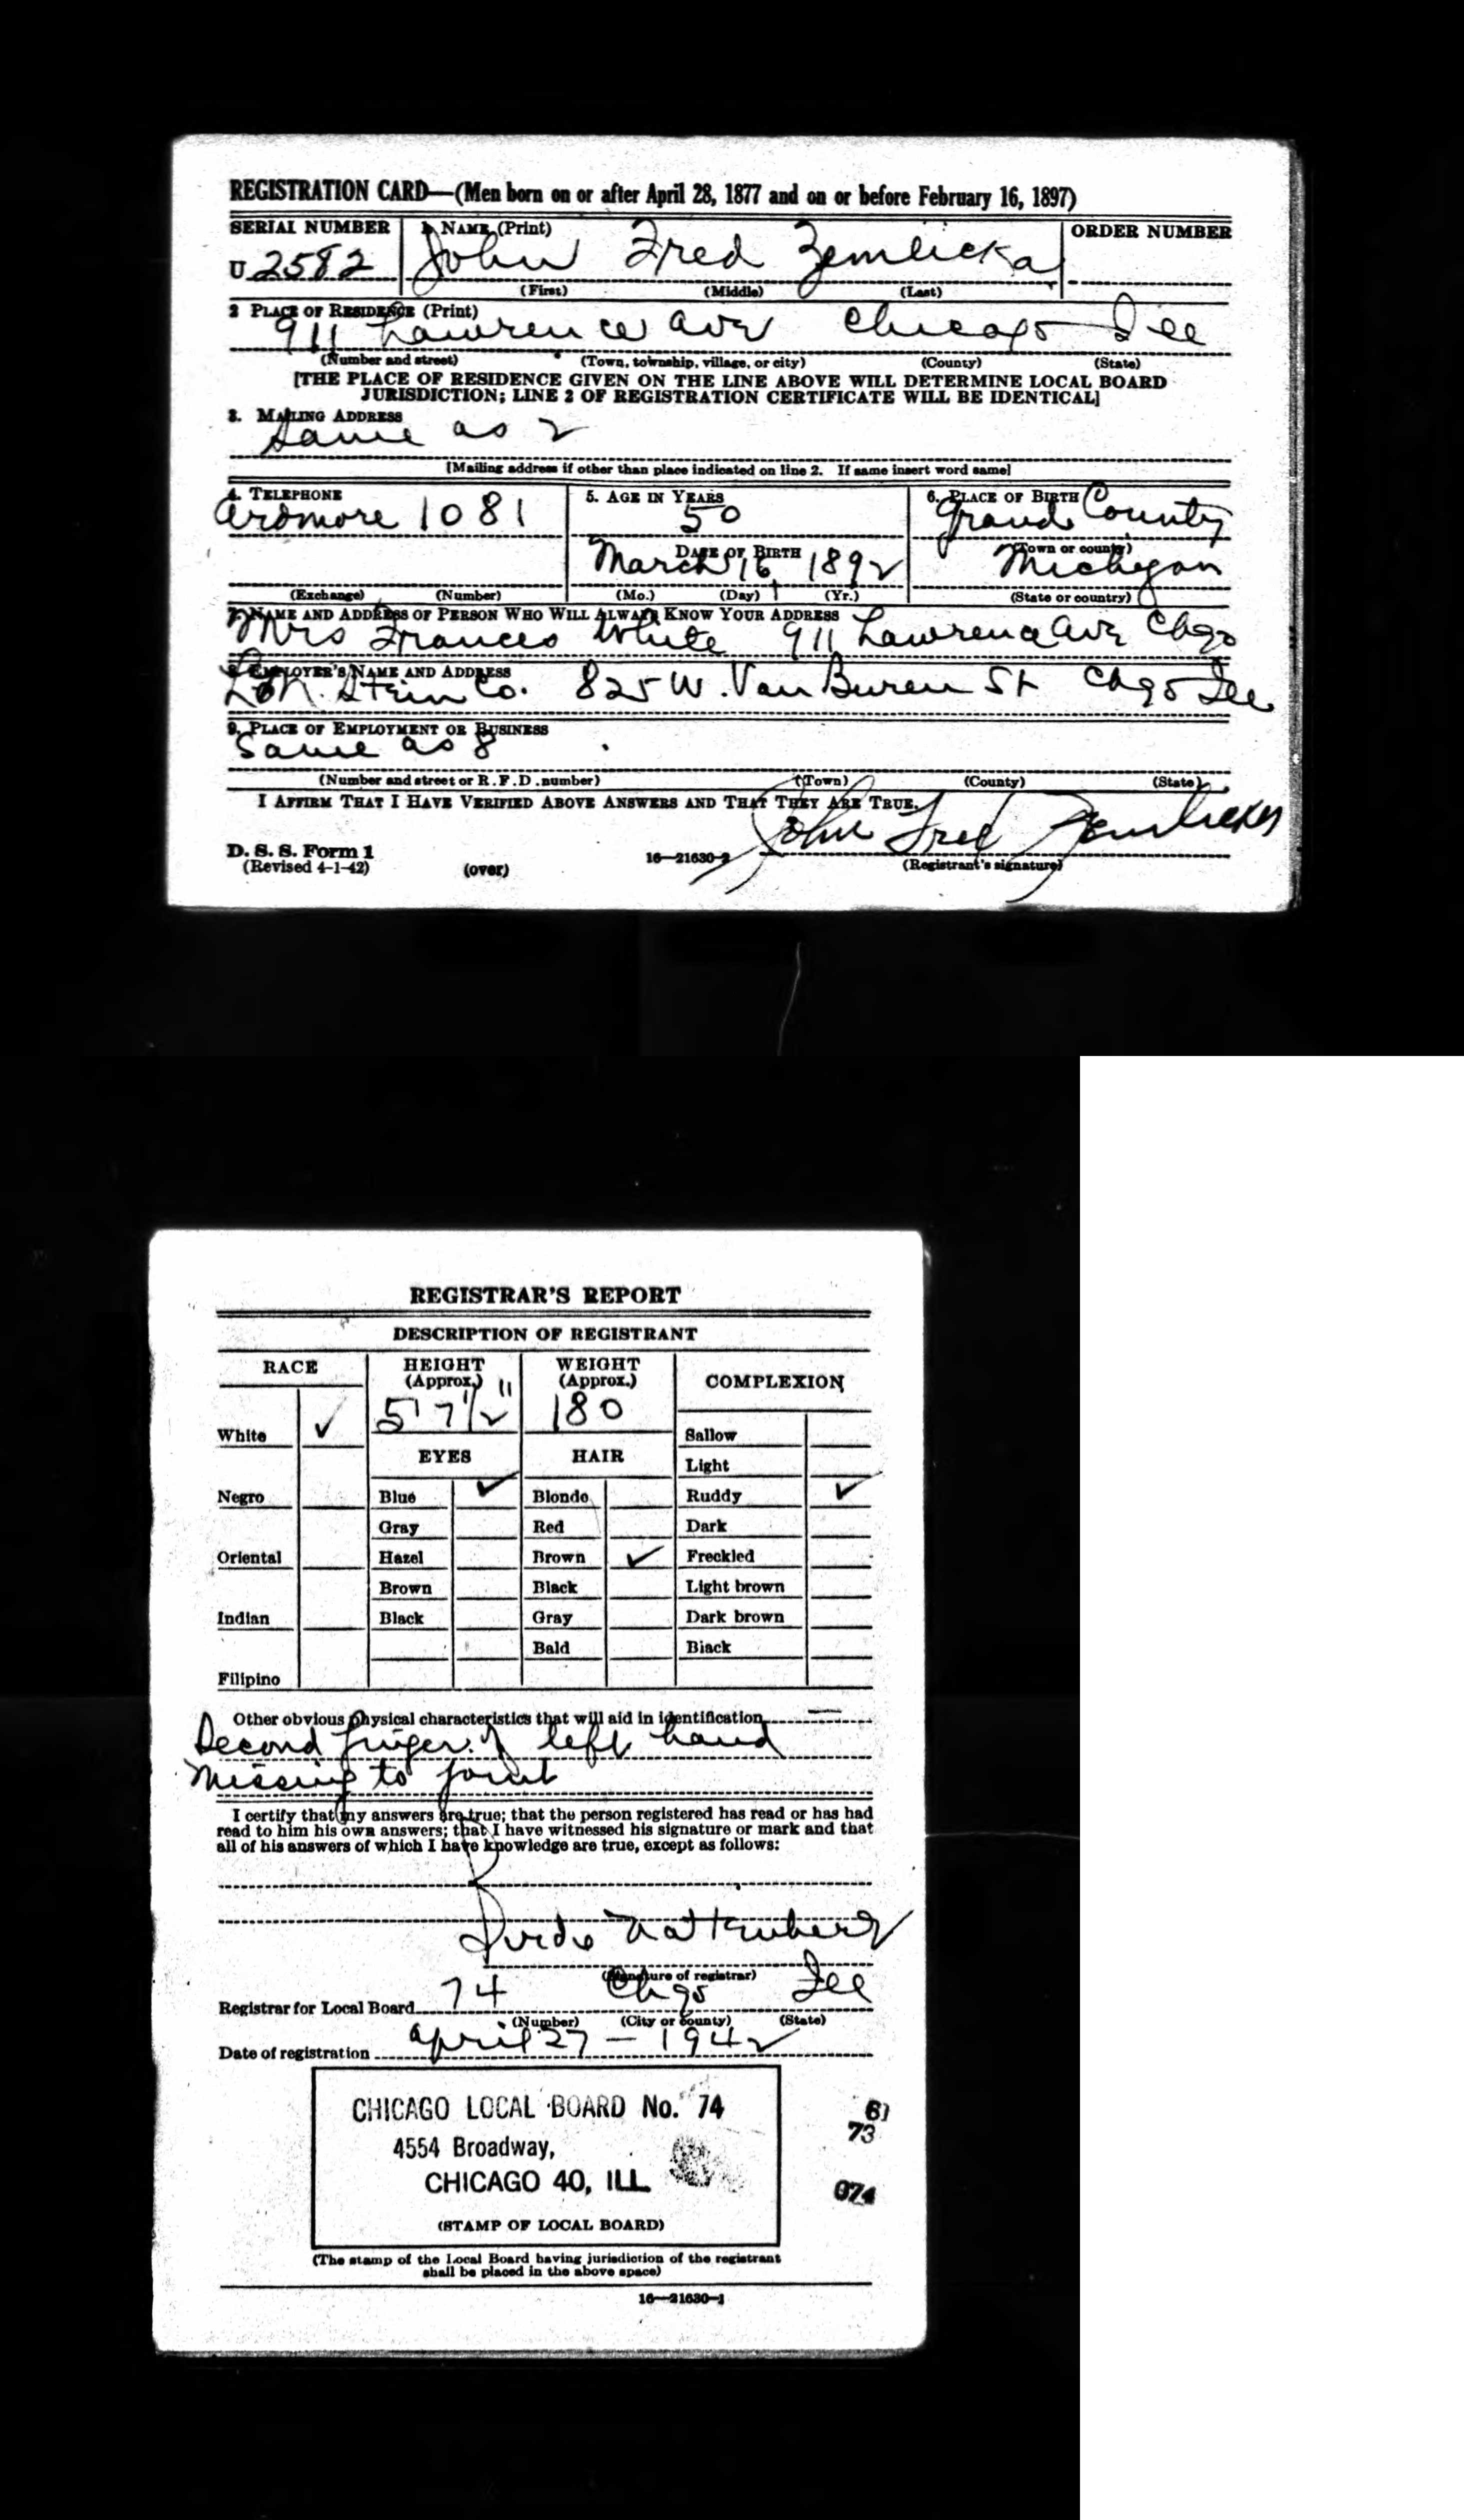 REGISTRATION CARD—(Men born on or after April 28, 1877 and on or before February 16, 1897)
SERIAL NUMBER 1. NAME (Print) ORDER NUMBER
U 2582 John Fred Zemlicka
(First) (Middle) (Last)
2 PLACE OF RESIDENCE (Print)
911 Lawrence Ave Chicago Ill
(Number and street) (Town, township, village, or city) (County) (State)
[THE PLACE OF RESIDENCE GIVEN ON THE LINE ABOVE WILL DETERMINE LOCAL BOARD
JURISDICTION; LINE 2 OF REGISTRATION CERTIFICATE WILL BE IDENTICAL]
3. MAILING ADDRESS
Same as 2
[Mailing address if other than place indicated on line 2. If same insert word same]
4. TELEPHONE 5. AGE IN YEARS 6. PLACE OF BIRTH
Ardmore 1081 50 Grand County
DATE OF BIRTH (Town or county)
March 16 1892 Michigan
(Exchange) (Number) (Mo.) (Day) (Yr.) (State or country)
7. NAME AND ADDRESS OF PERSON WHO WILL ALWAYS KNOW YOUR ADDRESS
Mrs Frances White 911 Lawrence Ave Chgo
8. EMPLOYER'S NAME AND ADDRESS
Stein Co. 825 W. Van Buren St Chgo Ill
9. PLACE OF EMPLOYMENT OR BUSINESS
Same as 8
(Number and street or R. F. D. number) (Town) (County) (State)
I AFFIRM THAT I HAVE VERIFIED ABOVE ANSWERS AND THAT THEY ARE TRUE.
John Fred Zemlicka
D. S. S. Form 1
(Revised 4-1-42) (over) 16—21630-2 (Registrant's signature)
REGISTRAR'S REPORT
DESCRIPTION OF REGISTRANT
RACE HEIGHT (Approx.) WEIGHT (Approx.) COMPLEXION
5' 7 1/2" 180
White ✓ Sallow
EYES HAIR Light
Negro Blue ✓ Blonde Ruddy ✓
Gray Red Dark
Oriental Hazel Brown ✓ Freckled
Brown Black Light brown
Indian Black Gray Dark brown
Bald Black
Filipino
Other obvious physical characteristics that will aid in identification —
Second finger of left hand
missing to joint
I certify that my answers are true; that the person registered has read or has had
read to him his own answers; that I have witnessed his signature or mark and that
all of his answers of which I have knowledge are true, except as follows:
(Signature of registrar)
Registrar for Local Board 74 Chgo Ill
(Number) (City or county) (State)
Date of registration April 27 - 1942
CHICAGO LOCAL BOARD No. 74
4554 Broadway,
CHICAGO 40, ILL
(STAMP OF LOCAL BOARD)
73
074
(The stamp of the Local Board having jurisdiction of the registrant
shall be placed in the above space)
16—21630-1